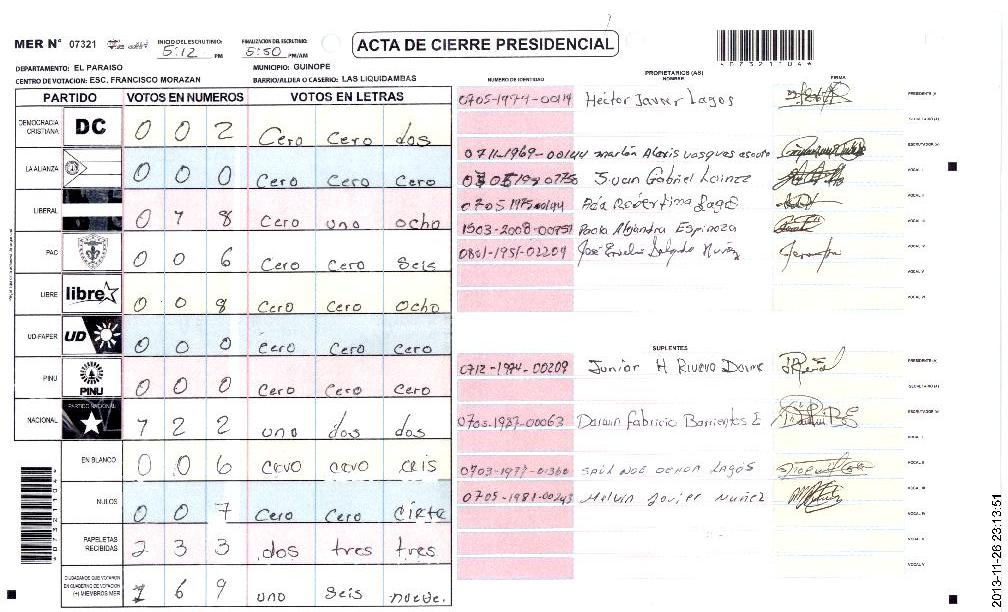 MER N° 07321
INICIO DEL ESCRUTINIO: 5:12 PM
FINALIZACION DEL ESCRUTINIO: 5:50 PM/AM
ACTA DE CIERRE PRESIDENCIAL
DEPARTAMENTO: EL PARAISO
MUNICIPIO: GUINOPE
CENTRO DE VOTACION: ESC. FRANCISCO MORAZAN
BARRIO/ALDEA O CASERIO: LAS LIQUIDAMBAS
PARTIDO VOTOS EN NUMEROS VOTOS EN LETRAS
DEMOCRACIA CRISTIANA DC 0 0 2 Cero Cero dos
LA ALIANZA 0 0 0 Cero Cero Cero
LIBERAL 0 7 8 Cero uno ocho
PAC 0 0 6 Cero Cero Seis
LIBRE libre 0 0 8 Cero Cero Ocho
UD-FAPER UD 0 0 0 Cero Cero Cero
PINU PINU 0 0 0 Cero Cero Cero
NACIONAL PARTIDO NACIONAL 7 2 2 uno dos dos
EN BLANCO 0 0 6 cero cero ceis
NULOS 0 0 7 Cero Cero Ciete
PAPELETAS RECIBIDAS 2 3 3 dos tres tres
CIUDADANOS QUE VOTARON EN CUADERNO DE VOTACION (+) MIEMBROS MER 1 6 9 uno Seis nueve.
PROPIETARIOS (AS)
NUMERO DE IDENTIDAD NOMBRE FIRMA
0705-1974-0014 Héctor Javier Lagos PRESIDENTE (A)
SECRETARIO (A)
0711-1969-00144 marlon Alexis vasques ESCRUTADOR (A)
Juan Gabriel Lainez VOCAL I
VOCAL II
1503-2008-00757 Paola Alejandra Espinoza VOCAL III
0801-1951-02209 José Delgado Nuñez VOCAL IV
VOCAL V
VOCAL VI
SUPLENTES
0712-1994-00209 Junior H PRESIDENTE (A)
SECRETARIO (A)
0703-1987-00063 Darwin Fabricio Barrientos E ESCRUTADOR (A)
VOCAL I
0703-1977-01360 SAÚL NOE OCHOA LAGOS VOCAL II
0705-1981-00243 Melvin Javier Nuñez VOCAL III
VOCAL IV
VOCAL V
VOCAL VI
2013-11-26 23:13:51